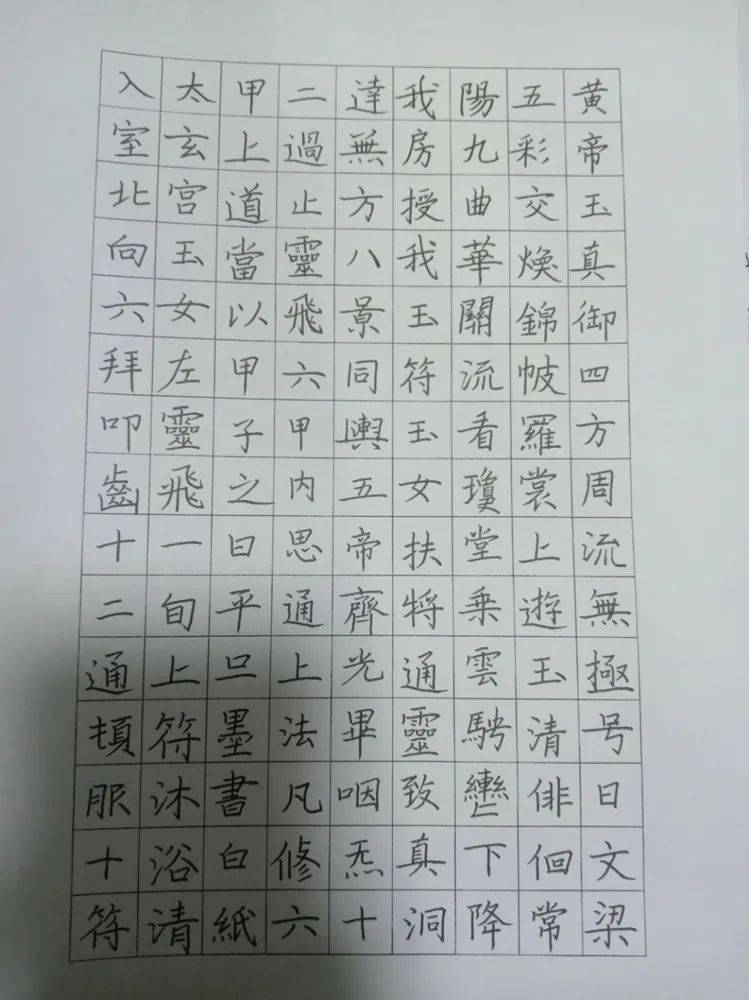 黄帝玉真御四方周流無極号日文梁
五彩交煥錦帔羅裳上遊玉清俳徊常
陽九曲華關流看瓊堂乗雲騁轡下降
我房授我玉符玉女扶将通靈致真洞
達無方八景同輿五帝齊光畢咽炁十
二過止靈飛六甲内思通上法凡修六
甲上道當以甲子之日平旦墨書白紙
太玄宫玉女左靈飛一旬上符沐浴请
入室北向六拜叩齒十二通頓服十符